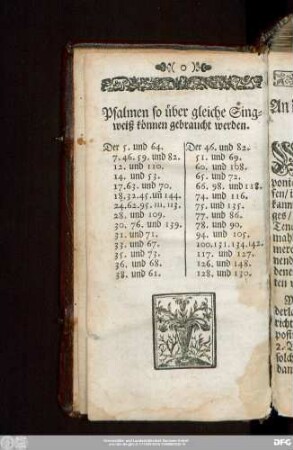 0
Psalmen so über gleiche Sing-
weiß können gebraucht werden.
Der 5. und 64.
7. 46. 59. und 82.
12. und 110.
14. und 53.
17. 63. und 70.
18. 32. 45. uñ 144.
24. 62. 95. 111. 113.
28. und 109.
30. 76. und 139.
31. und 71.
33. und 67.
35. und 73.
36. und 68.
38. und 61.
Der 46. und 82.
51. und 69.
60. und 108.
65. und 72.
66. 98. und 118.
74. und 116.
75. und 135.
77. und 86.
78. und 90.
94. und 105.
100. 131. 134. 142.
117. und 127.
126. und 148.
128. und 130.
An
W
ponit
sen/
kann
ges/
Ten
mah
mer
mend
dene
nen
derl
richt
posit
2. A
solch
dan
DFG